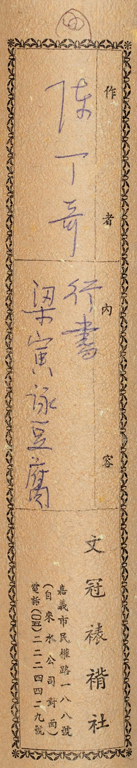 四
作者
陳丁奇
內容
行書
梁寅詠豆腐
文冠裱褙社
嘉義市民權路一八八號
(自來水公司對面)
電話(〇五)二二二四四二九號